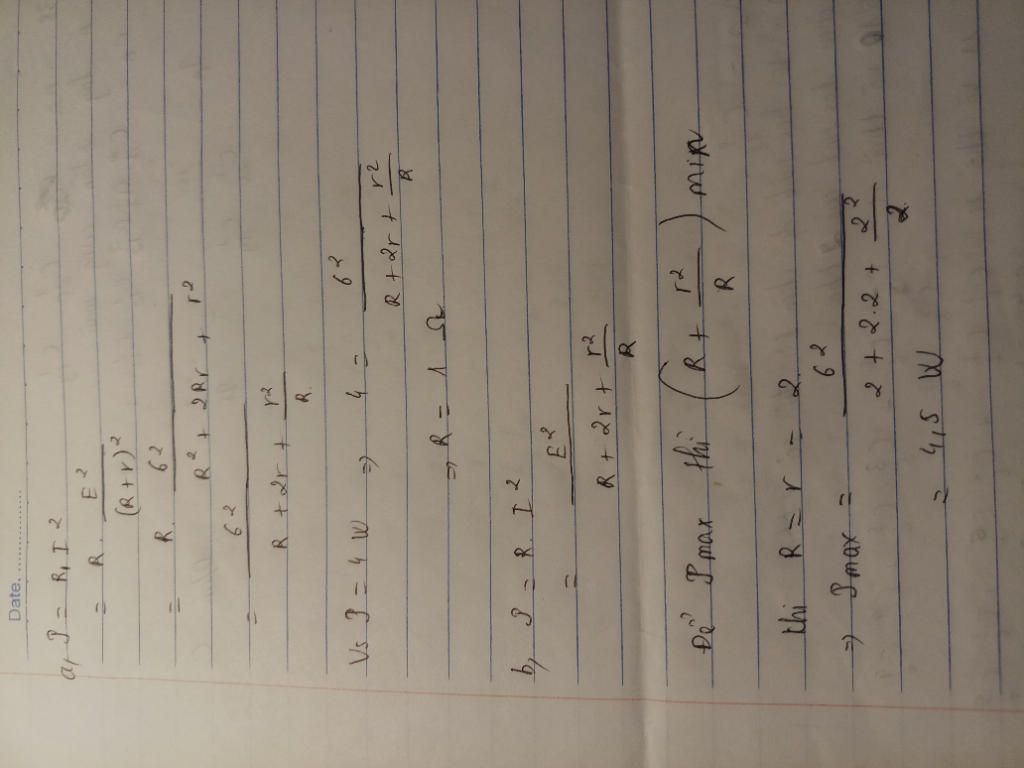 Date...............
a, P = R, I²
= R. E² / (R+r)²
= R. 6² / R² + 2Rr + r²
= 6² / R + 2r + r²/R
Vs P = 4 W => 4 = 6² / R + 2r + r²/R
=> R = 1 Ω
b, P = R. I²
= E² / R + 2r + r²/R
Để Pmax thì (R + r²/R) min
thì R = r = 2
=> Pmax = 6² / 2 + 2.2 + 2²/2
= 4,5 W